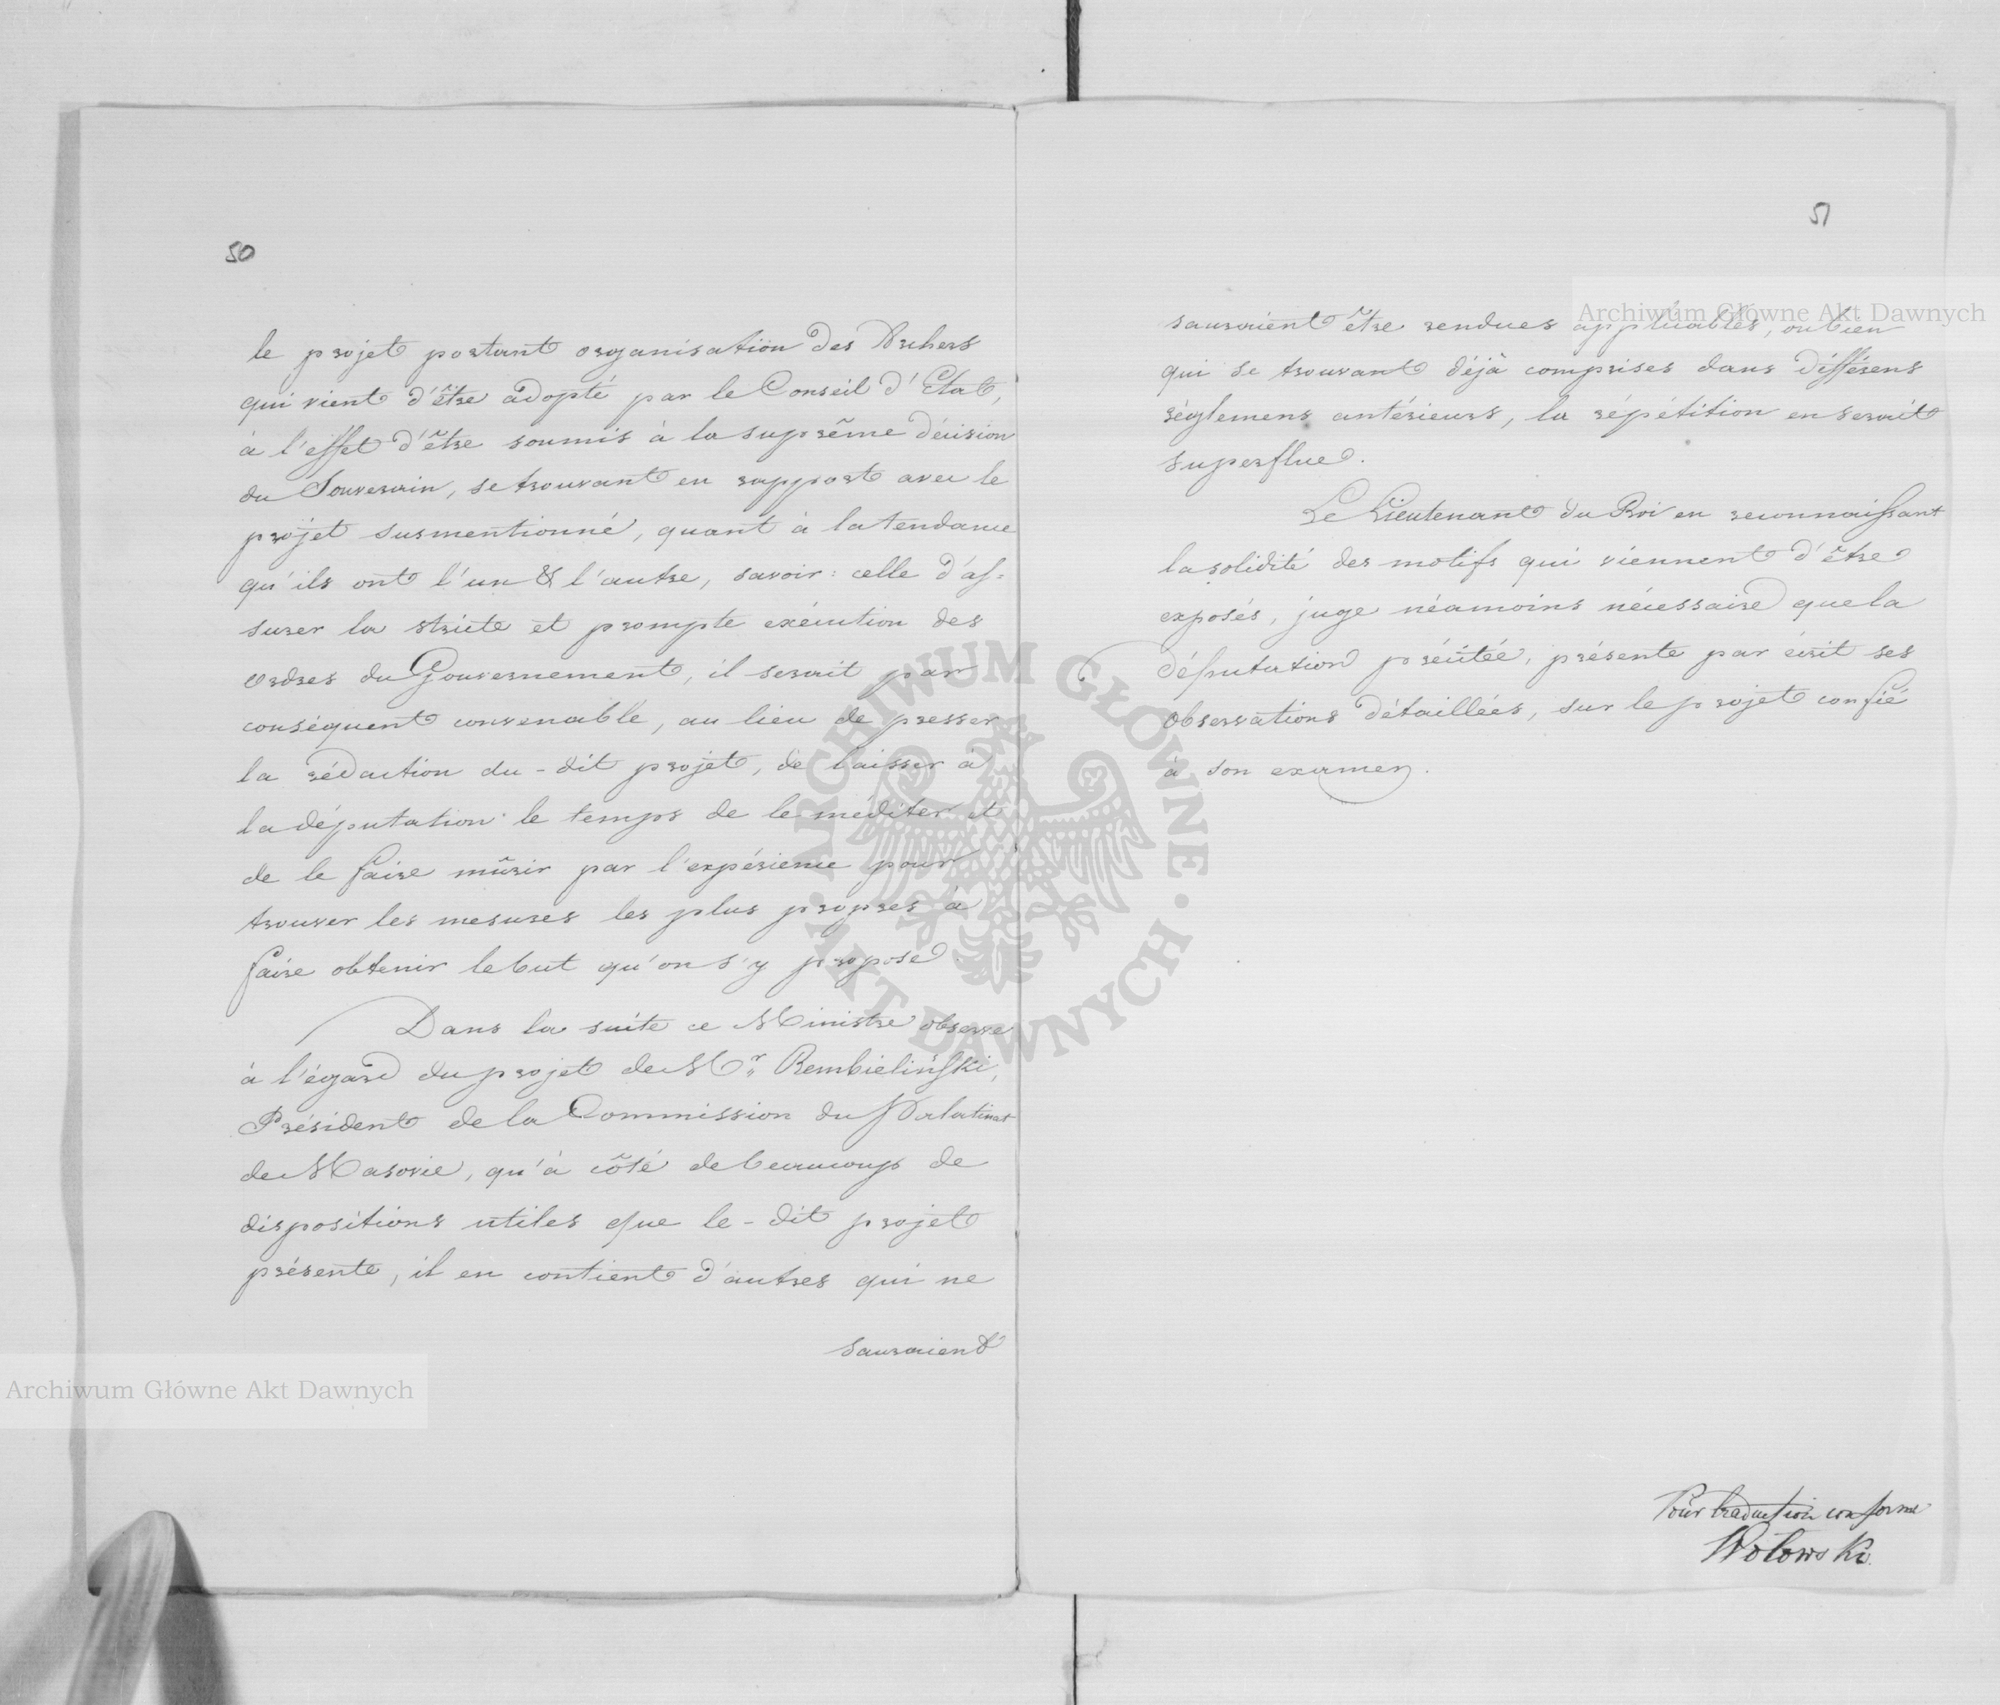 50
le projet portant organisation des Archers
qui vient d'être adopté par le Conseil d'Etat,
à l'effet d'être soumis à la suprême décision
du Souverain, se trouvant en rapport avec le
projet susmentionné, quant à la tendance
qu'ils ont l'un & l'autre, savoir: celle d'as-
surer la stricte et prompte exécution des
ordres du Gouvernement, il serait par
conséquent convenable, au lieu de presser
la rédaction du-dit projet, de laisser à
la députation le temps de le méditer et
de le faire mûrir par l'expérience pour
trouver les mesures les plus propres à
faire obtenir le but qu'on s'y propose.
Dans la suite ce Ministre observe
à l'égard du projet de Mr. Rembieliński,
Président de la Commission du Palatinat
de Masovie, qu'à côté de beaucoup de
dispositions utiles que le-dit projet
présente, il en contient d'autres qui ne
sauraient
51
sauraient être rendues applicables, ou bien
qui se trouvant déjà comprises dans différens
réglemens antérieurs, la répétition en serait
superflue.
Le Lieutenant du Roi en reconnaissant
la solidité des motifs qui viennent d'être
exposés, juge néamoins nécessaire que la
députation précitée, présente par écrit ses
observations détaillées, sur le projet confié
à son examen.
Pour traduction conforme
Wołowski.
Archiwum Główne Akt Dawnych
Archiwum Główne Akt Dawnych
ARCHIWUM GŁÓWNE
AKT DAWNYCH